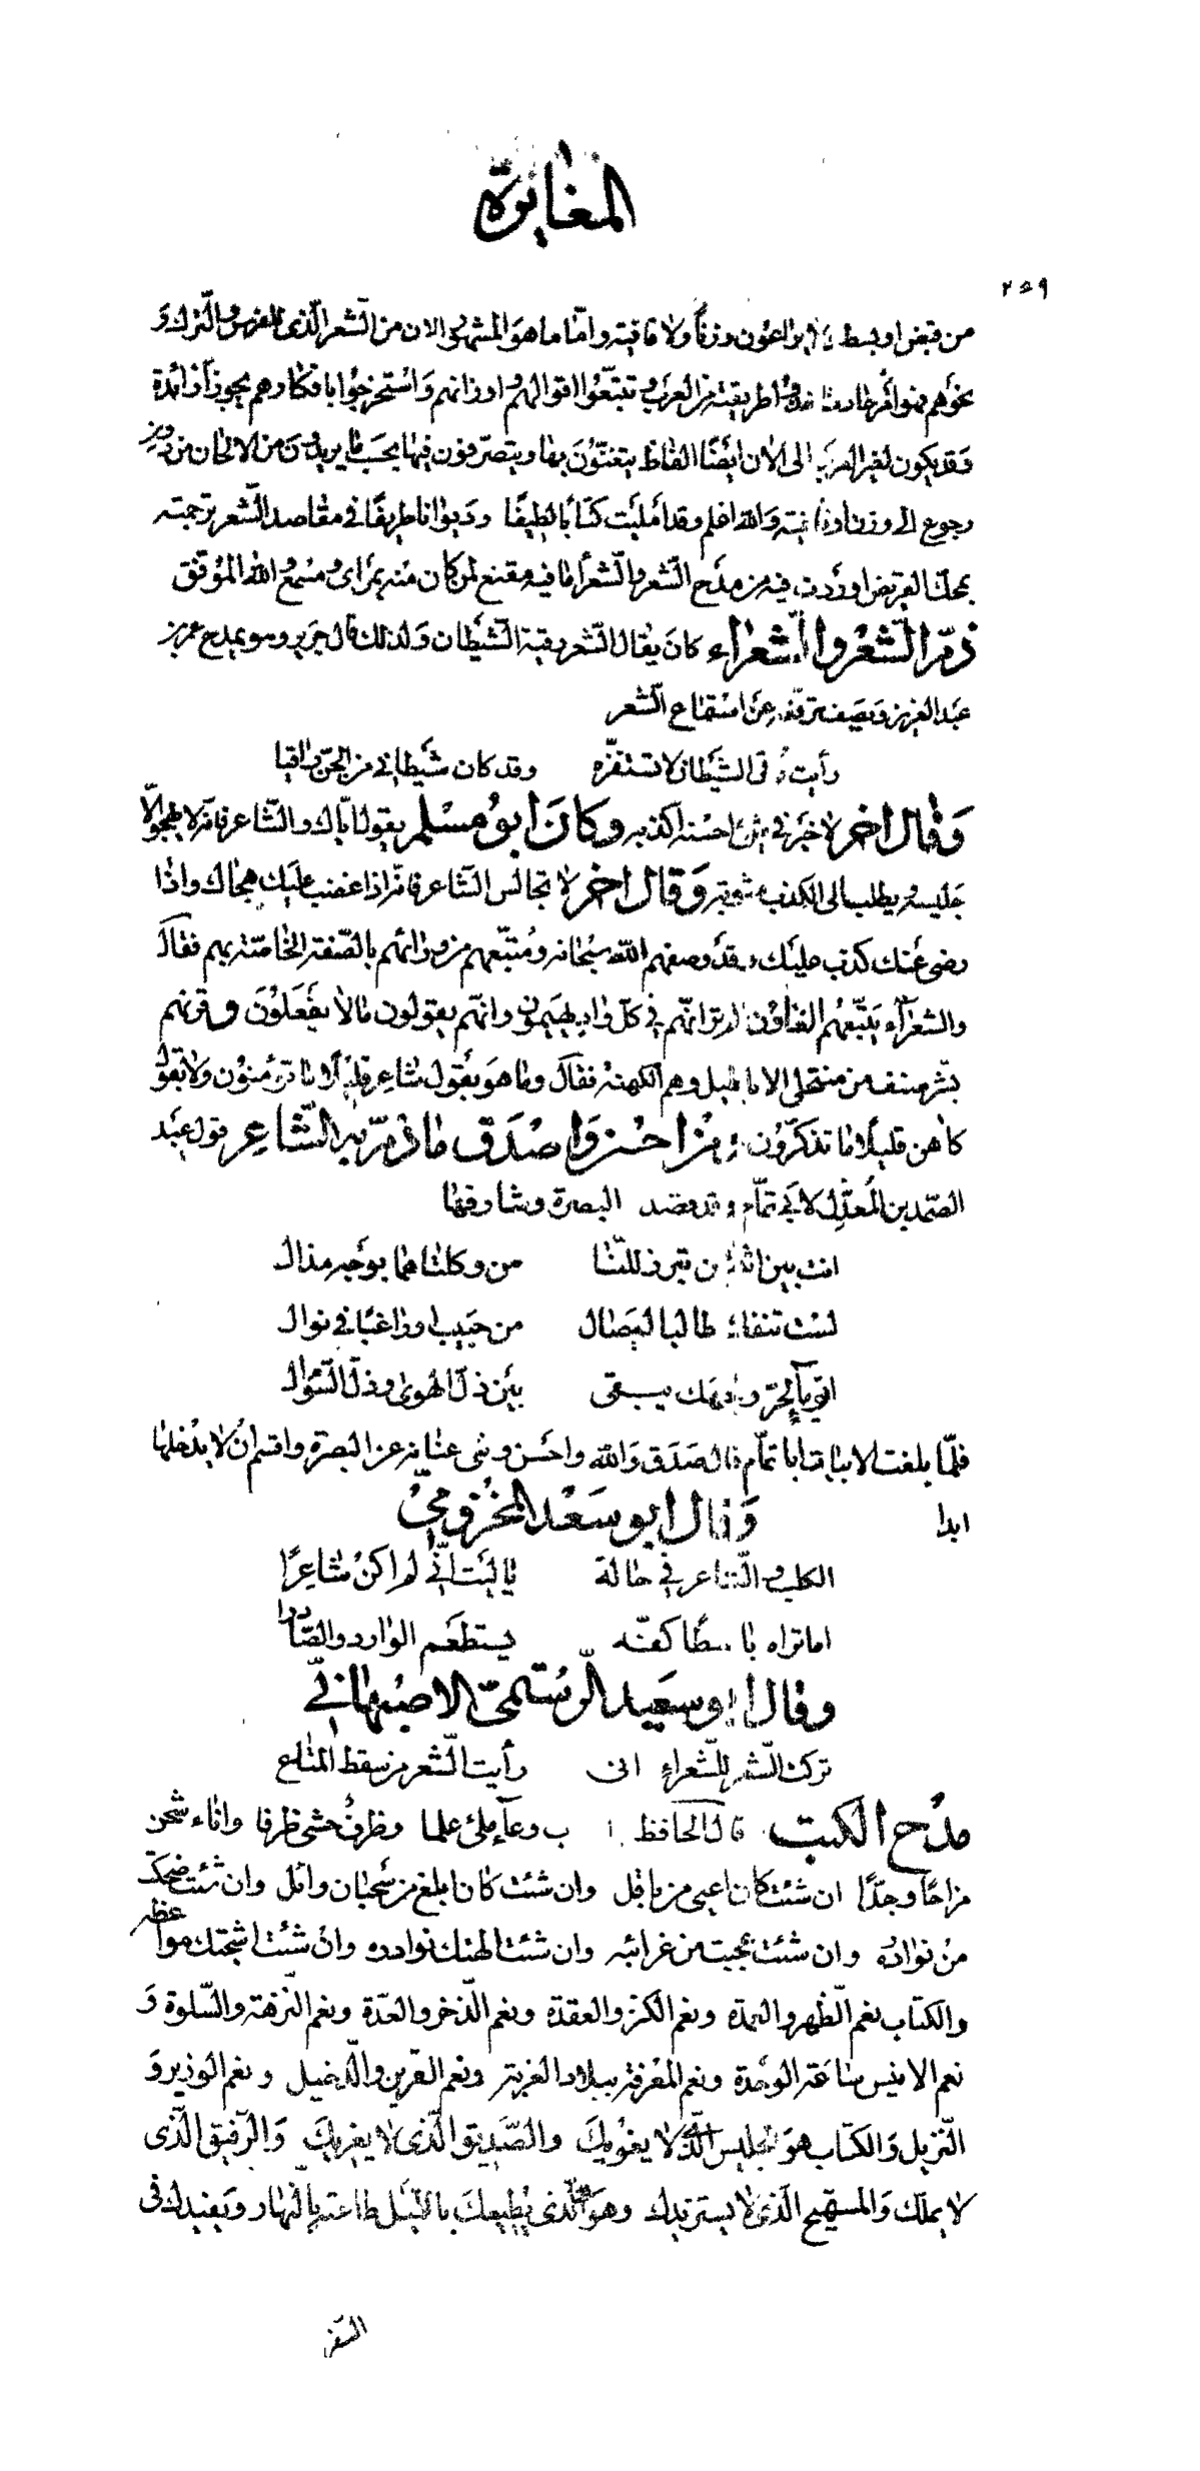 المغايرة
٢٥٩
من قبض او بسط ولا يراعون وزنا ولا قافية واما ما هو المشهور الان من الشعر الذى للفرس والترك و
نحوهم فهو امر حادث اخذوا طريقته من العرب وتتبعوا اقوالهم واوزانهم واستخرجوا بافكارهم بحورا زائدة
وقد يكون لغير العرب الى الان ايضا الفاظ يتغنون بها ويتصرفون فيها بحسب ما يريدون من الالحان من دون
رجوع الى وزن او قافية والله اعلم وقد امليت كتابا لطيفا وديوانا طريفا في مقاصد الشعر ترجمته
بمحك القريض اوردت فيه من مدح الشعر والشعراء ما فيه مقنع لمن كان منه بمراى ومسمع والله الموفق
ذم الشعر والشعراء كان يقال الشعر رقية الشيطان ولذلك قال جرير وهو يمدح عمر بن
عبد العزيز ويصف ترفعه عن استماع الشعر
رأيت رقى الشيطان لا تستفزه وقد كان شيطاني من الجن راقيا
وقال اخر لا خير في شئ احسنه اكذبه وكان ابو مسلم يقول اياك والشاعر فانه لا يهجو الا
جليسه ويطلب على الكذب مثوبة وقال اخر لا تجالس الشاعر فانه اذا غضب عليك هجاك واذا
رضى عنك كذب عليك وقد وصفهم الله سبحانه ومتبعهم من ورائهم بالصفة الخاصة بهم فقال
والشعراء يتبعهم الغاوون الم تر انهم في كل واد يهيمون وانهم يقولون ما لا يفعلون وقرنهم
بشر صنف من منتحلى الاباطيل وهم الكهنة فقال وما هو بقول شاعر قليلا ما تؤمنون ولا بقول
كاهن قليلا ما تذكرون ومن احسن واصدق ما ذم به الشاعر قول عبد
الصمد بن المعذل لابي تمام وقد قصد البصرة وشارفها
انت بين اثنتين تبرز للنا من وكلتاهما بوجه مذال
لست تنفك طالبا لوصال من حبيب او راغبا في نوال
اي ماء لحر وجهك يبقى بين ذل الهوى وذل السؤال
فلما بلغت الابيات ابا تمام قال صدق والله واحسن وثنى عنانه عن البصرة واقسم ان لا يدخلها
ابدا وقال ابو سعد المخزومي
الكلب والشاعر في حالة يا ليت اني لم اكن شاعرا
اما تراه باسطا كفه يستطعم الوارد والصادرا
وقال ابو سعيد الرستمي الاصبهاني
تركت الشعر للشعراء انى رأيت الشعر من سقط المتاع
مدح الكتب قال الجاحظ وعاء ملئ علما وظرف حشى ظرفا واناء شحن
مزاحا وجدا ان شئت كان اعيى من باقل وان شئت كان ابلغ من سحبان وائل وان شئت ضحكت
من نوادره وان شئت عجبت من غرائبه وان شئت الهتك نوادره وان شئت اشجتك مواعظه
والكتاب نعم الظهر والعمدة ونعم الكنز والعقدة ونعم الذخر والعدة ونعم النزهة والسلوة و
نعم الانيس ساعة الوحدة ونعم المعرفة ببلاد الغربة ونعم القرين والدخيل ونعم الوزير و
النزيل والكتاب هو الجليس الذي لا يغويك والصديق الذى لا يغريك والرفيق الذى
لا يملك والمسميح الذى لا يستزيدك وهو الذى يطيعك بالليل طاعته بالنهار ويفيدك فى
السفر